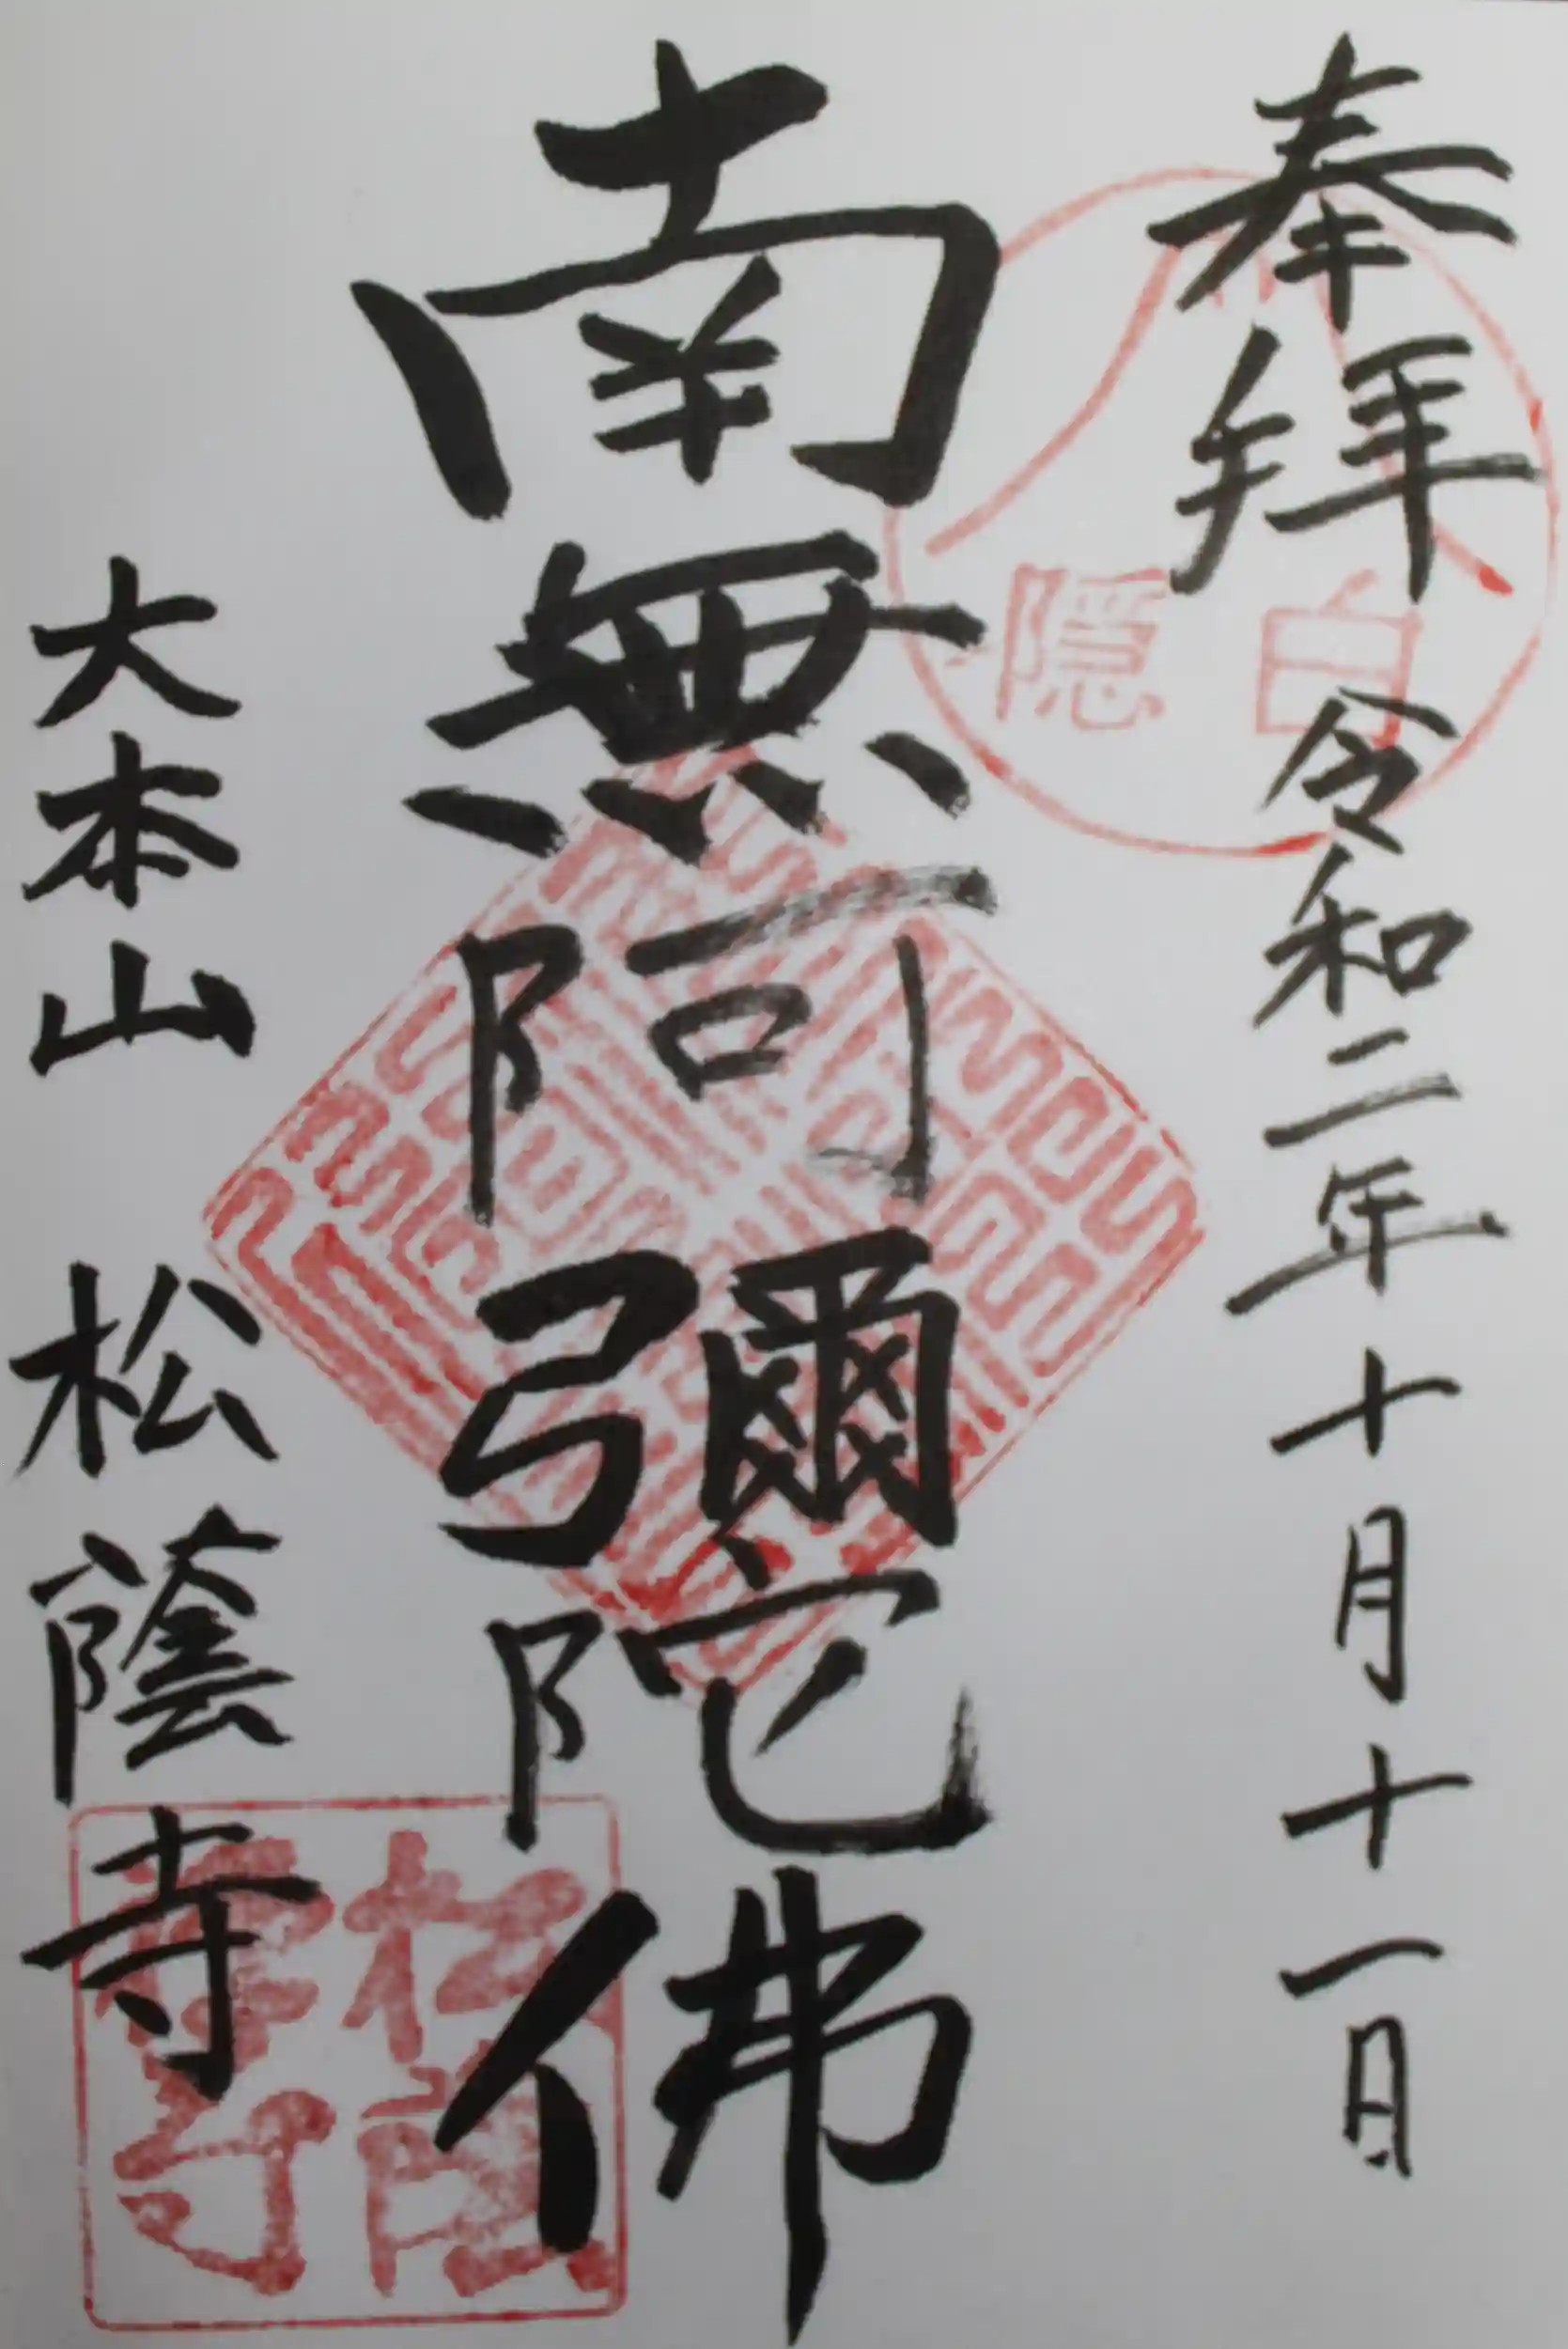 奉拜 令和二年十月十一日
白隠
南無阿彌陀佛
大本山 松蔭寺